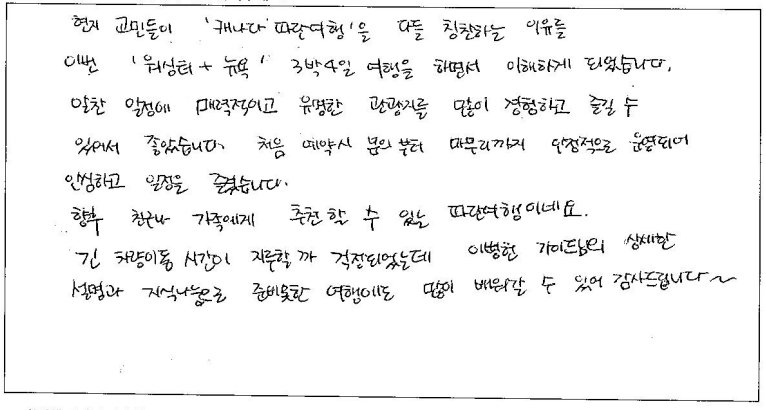 현지 교민들이 '캐나다 파란여행'을 다들 칭찬하는 이유를
이번 '워싱턴 + 뉴욕' 3박4일 여행을 하면서 이해하게 되었습니다.
알찬 일정에 매력적이고 유명한 관광지를 많이 경험하고 즐길 수
있어서 좋았습니다. 처음 예약시 문의부터 마무리까지 안정적으로 운영되어
안심하고 일정을 즐겼습니다.
향후 친구나 가족에게 추천할 수 있는 파란여행이네요.
긴 차량이동 시간이 지루할까 걱정되었는데 이병헌 가이드님의 상세한
설명과 지식나눔으로 준비못한 여행에도 많이 배워갈 수 있어 감사드립니다~